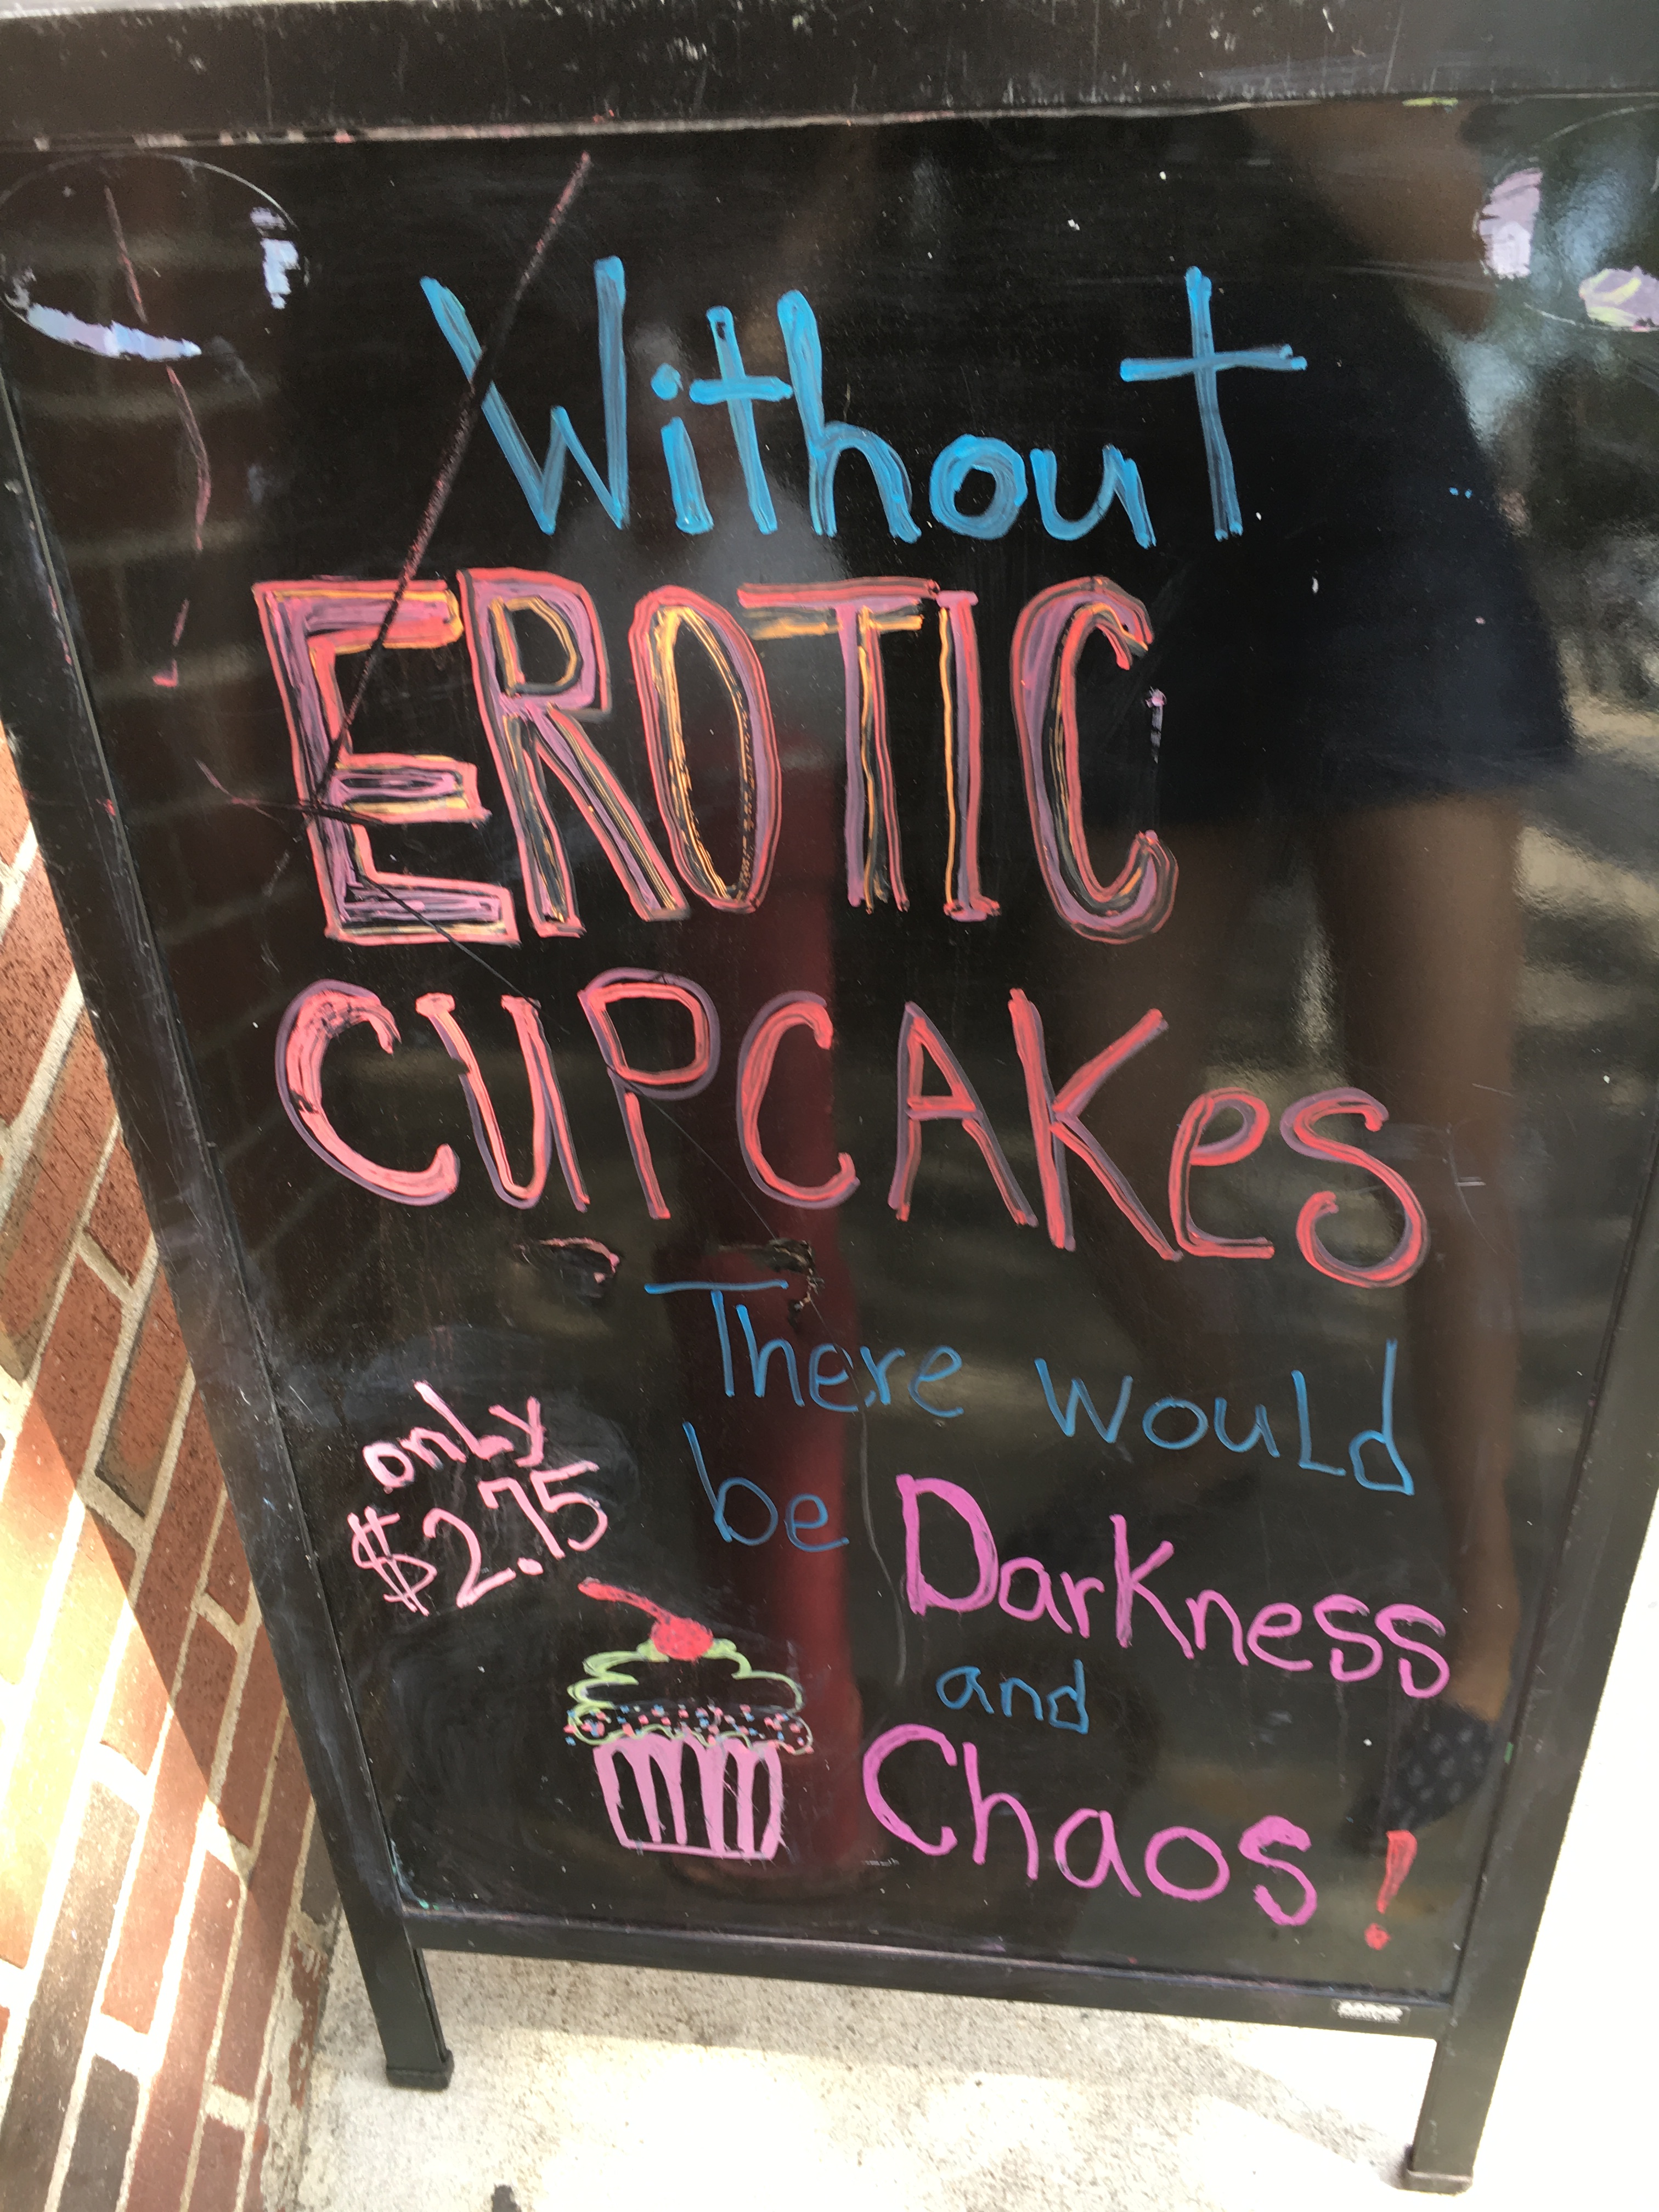 Without
EROTIC
CUPCAKes
There would
be Darkness
and
Chaos!
only
$2.75